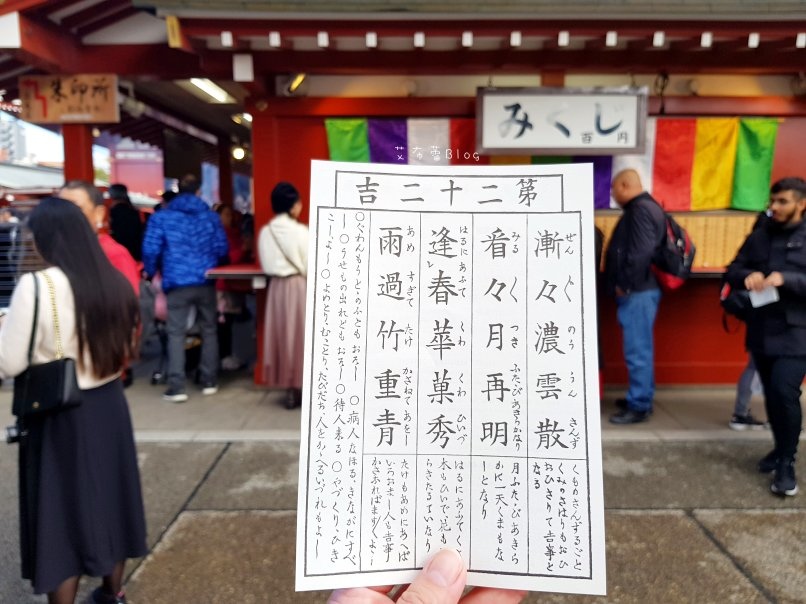 朱印所
みくじ
百円
艾咘蕾Blog
第二十二吉
漸々濃雲散
ぜん ぐ のう うん さんず
看々月再明
みる く つき ふたゝび あきらかなり
逢春華菓秀
はるにあふて くわ くわ ひいづ
雨過竹重青
あめ すぎて たけ かさねて あをし
くものさんずるごと
くみのさはりもおひ
おひさりて吉事と
なる
月ふたゝびあきら
かに一天くまもな
しとなり
はるにあふてくさ
木もひいで花も
らきたるていなり
たけもあめにあへば
いろあをし人も吉事
かさなればますますよし
〇ぐわんもうとゝのふともおそし 〇病人なほる、きながにすべ
し 〇うせもの出れどもおそし 〇待人来る 〇やづくりひき
こしよし 〇よめとり、むことり、たびだち、人をかゝへるいづれもよし